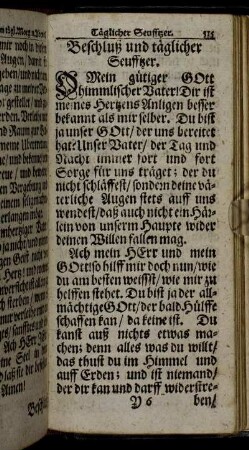 Täglicher Seufftzer. 515
Beschluß und täglicher
Seufftzer.
O Mein gütiger GOtt
himmlischer Vater! Dir ist
meines Hertzens Anligen besser
bekannt als mir selber. Du bist
ja unser GOtt/ der uns bereitet
hat: Unser Vater/ der Tag und
Nacht immer fort und fort
Sorge für uns träget; der du
nicht schläffest/ sondern deine vä-
terliche Augen stets auff uns
wendest/ daß auch nicht ein Här-
lein von unserm Haupte wider
deinen Willen fallen mag.
Ach mein HErr und mein
GOtt! so hilff mir doch nun/ wie
du am besten weissst/ wie mir zu
helffen stehet. Du bist ja der all-
mächtige GOtt/ der bald Hülffe
schaffen kan/ da keine ist. Du
kanst auß nichts etwas ma-
chen; denn alles was du willt/
das thust du im Himmel und
auff Erden; und ist niemand/
der dir kan und darff widerstre-
Y 6 ben/